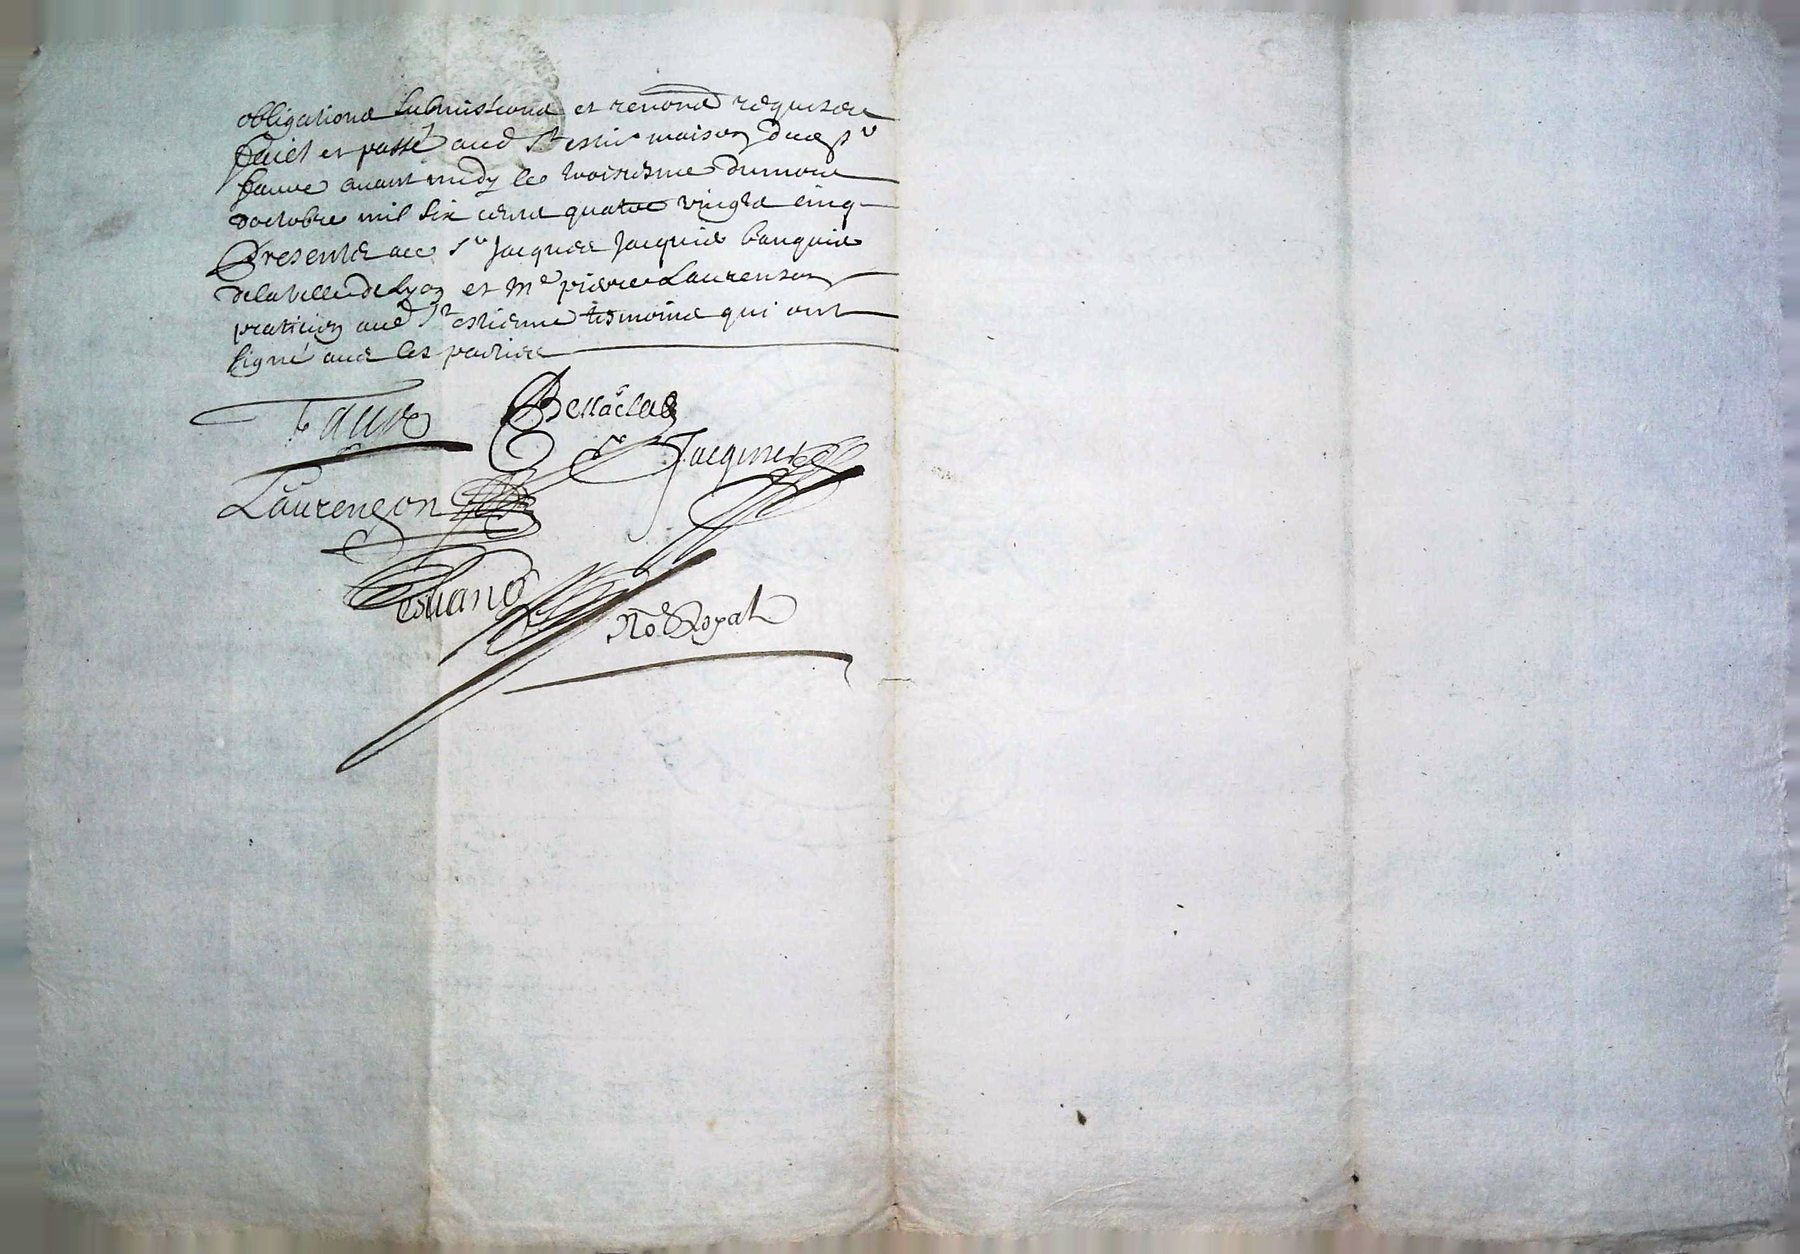 obligations submissions et renon͠e requises
faict et passé aud St estie maison dud sr
fauve avant midy le troisiesme du mois
d'octobre mil six cens quatre vingts cinq
Presents acc sr Jacques Jacquié banquie
de la ville de Lyon et Me pierre Laurenson
praticien aud St estienne tesmoins qui ont
signé avec les parties
Fauve Bellaclas
Jacquier
Laurençon
No Royal